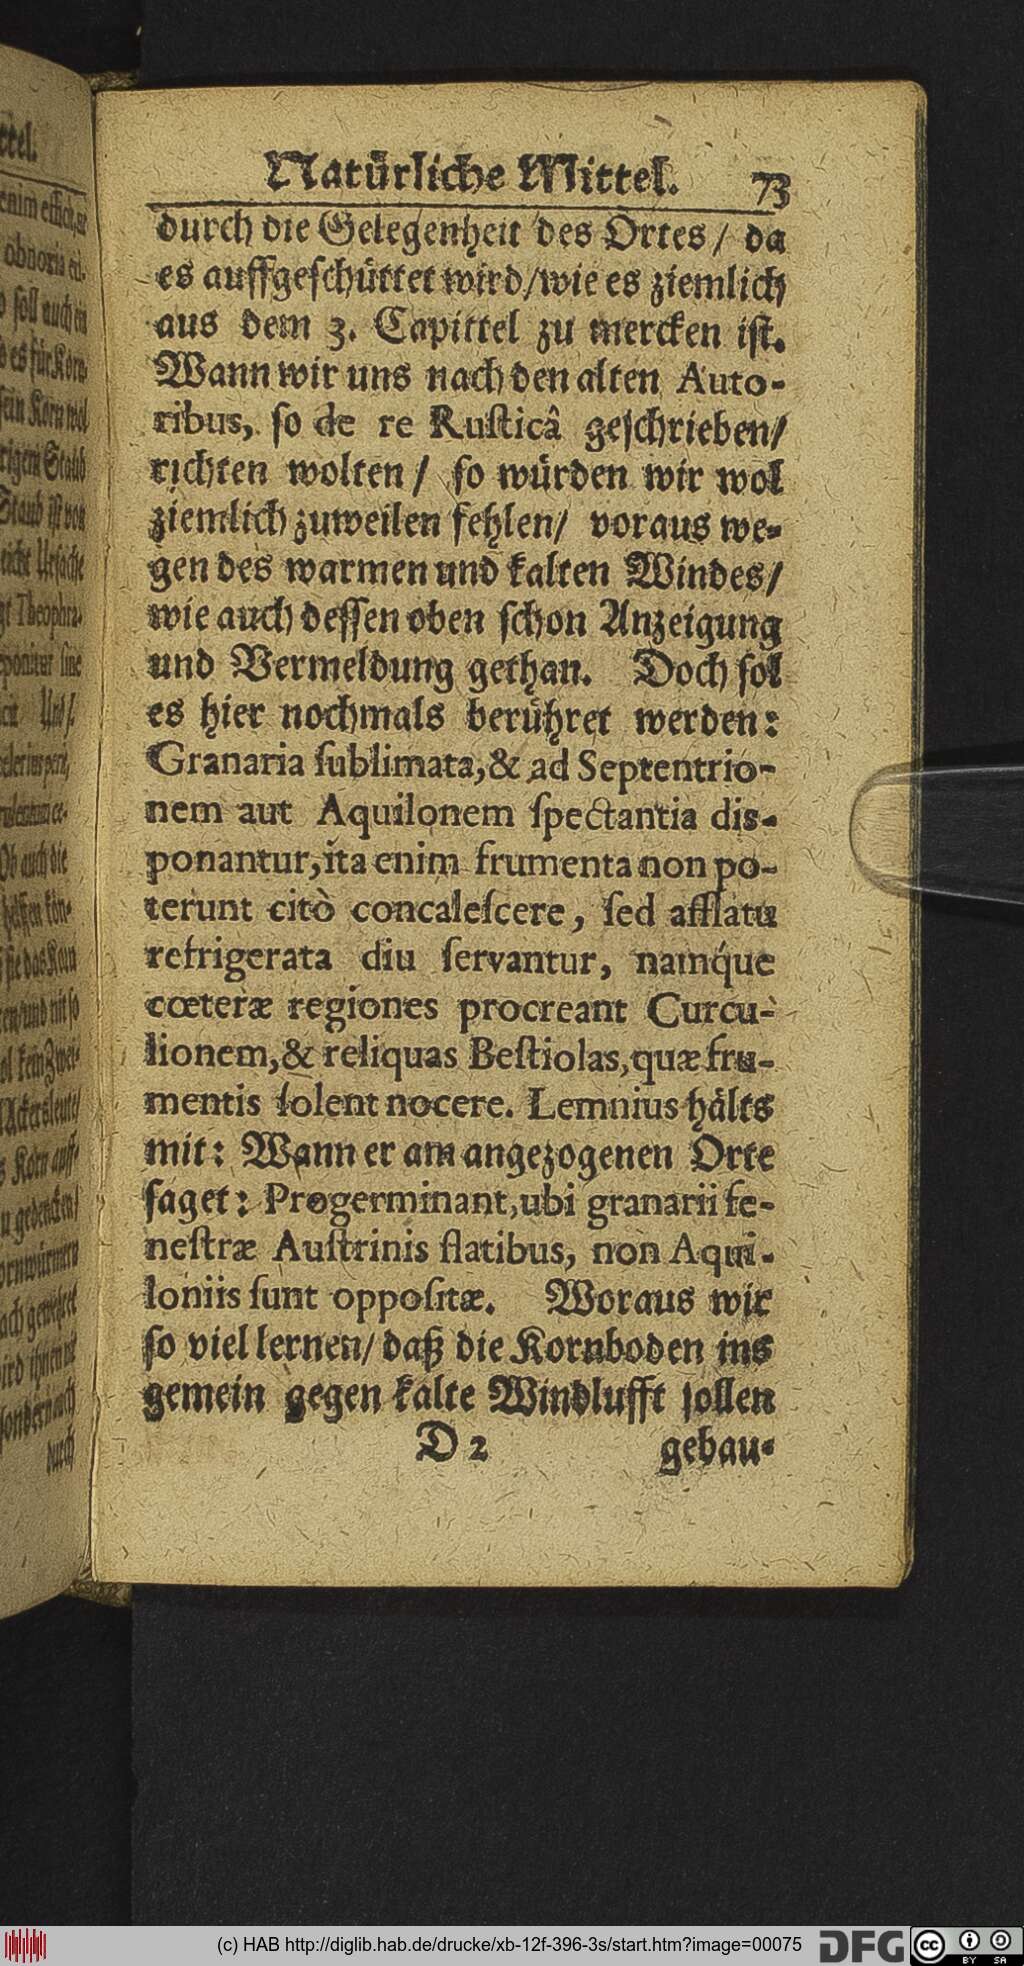 Natürliche Mittel. 73
durch die Gelegenheit des Ortes/ da
es auffgeschüttet wird/wie es ziemlich
aus dem 3. Capittel zu mercken ist.
Wann wir uns nach den alten Auto-
ribus, so de re Rusticâ geschrieben/
richten wolten/ so würden wir wol
ziemlich zuweilen fehlen/ voraus we-
gen des warmen und kalten Windes/
wie auch dessen oben schon Anzeigung
und Vermeldung gethan. Doch sol
es hier nochmals berühret werden:
Granaria sublimata, & ad Septentrio-
nem aut Aquilonem spectantia dis-
ponantur, ita enim frumenta non po-
terunt citò concalescere, sed afflatu
refrigerata diu servantur, namq́ue
cœteræ regiones procreant Curcu-
lionem, & reliquas Bestiolas, quæ fru-
mentis solent nocere. Lemnius hälts
mit: Wann er am angezogenen Orte
saget: Progerminant, ubi granarii fe-
nestræ Austrinis flatibus, non Aqui-
loniis sunt oppositæ. Woraus wir
so viel lernen/ daß die Kornboden ins
gemein gegen kalte Windlufft sollen
D 2 gebau-
(c) HAB http://diglib.hab.de/drucke/xb-12f-396-3s/start.htm?image=00075
DFG
cc
BY SA